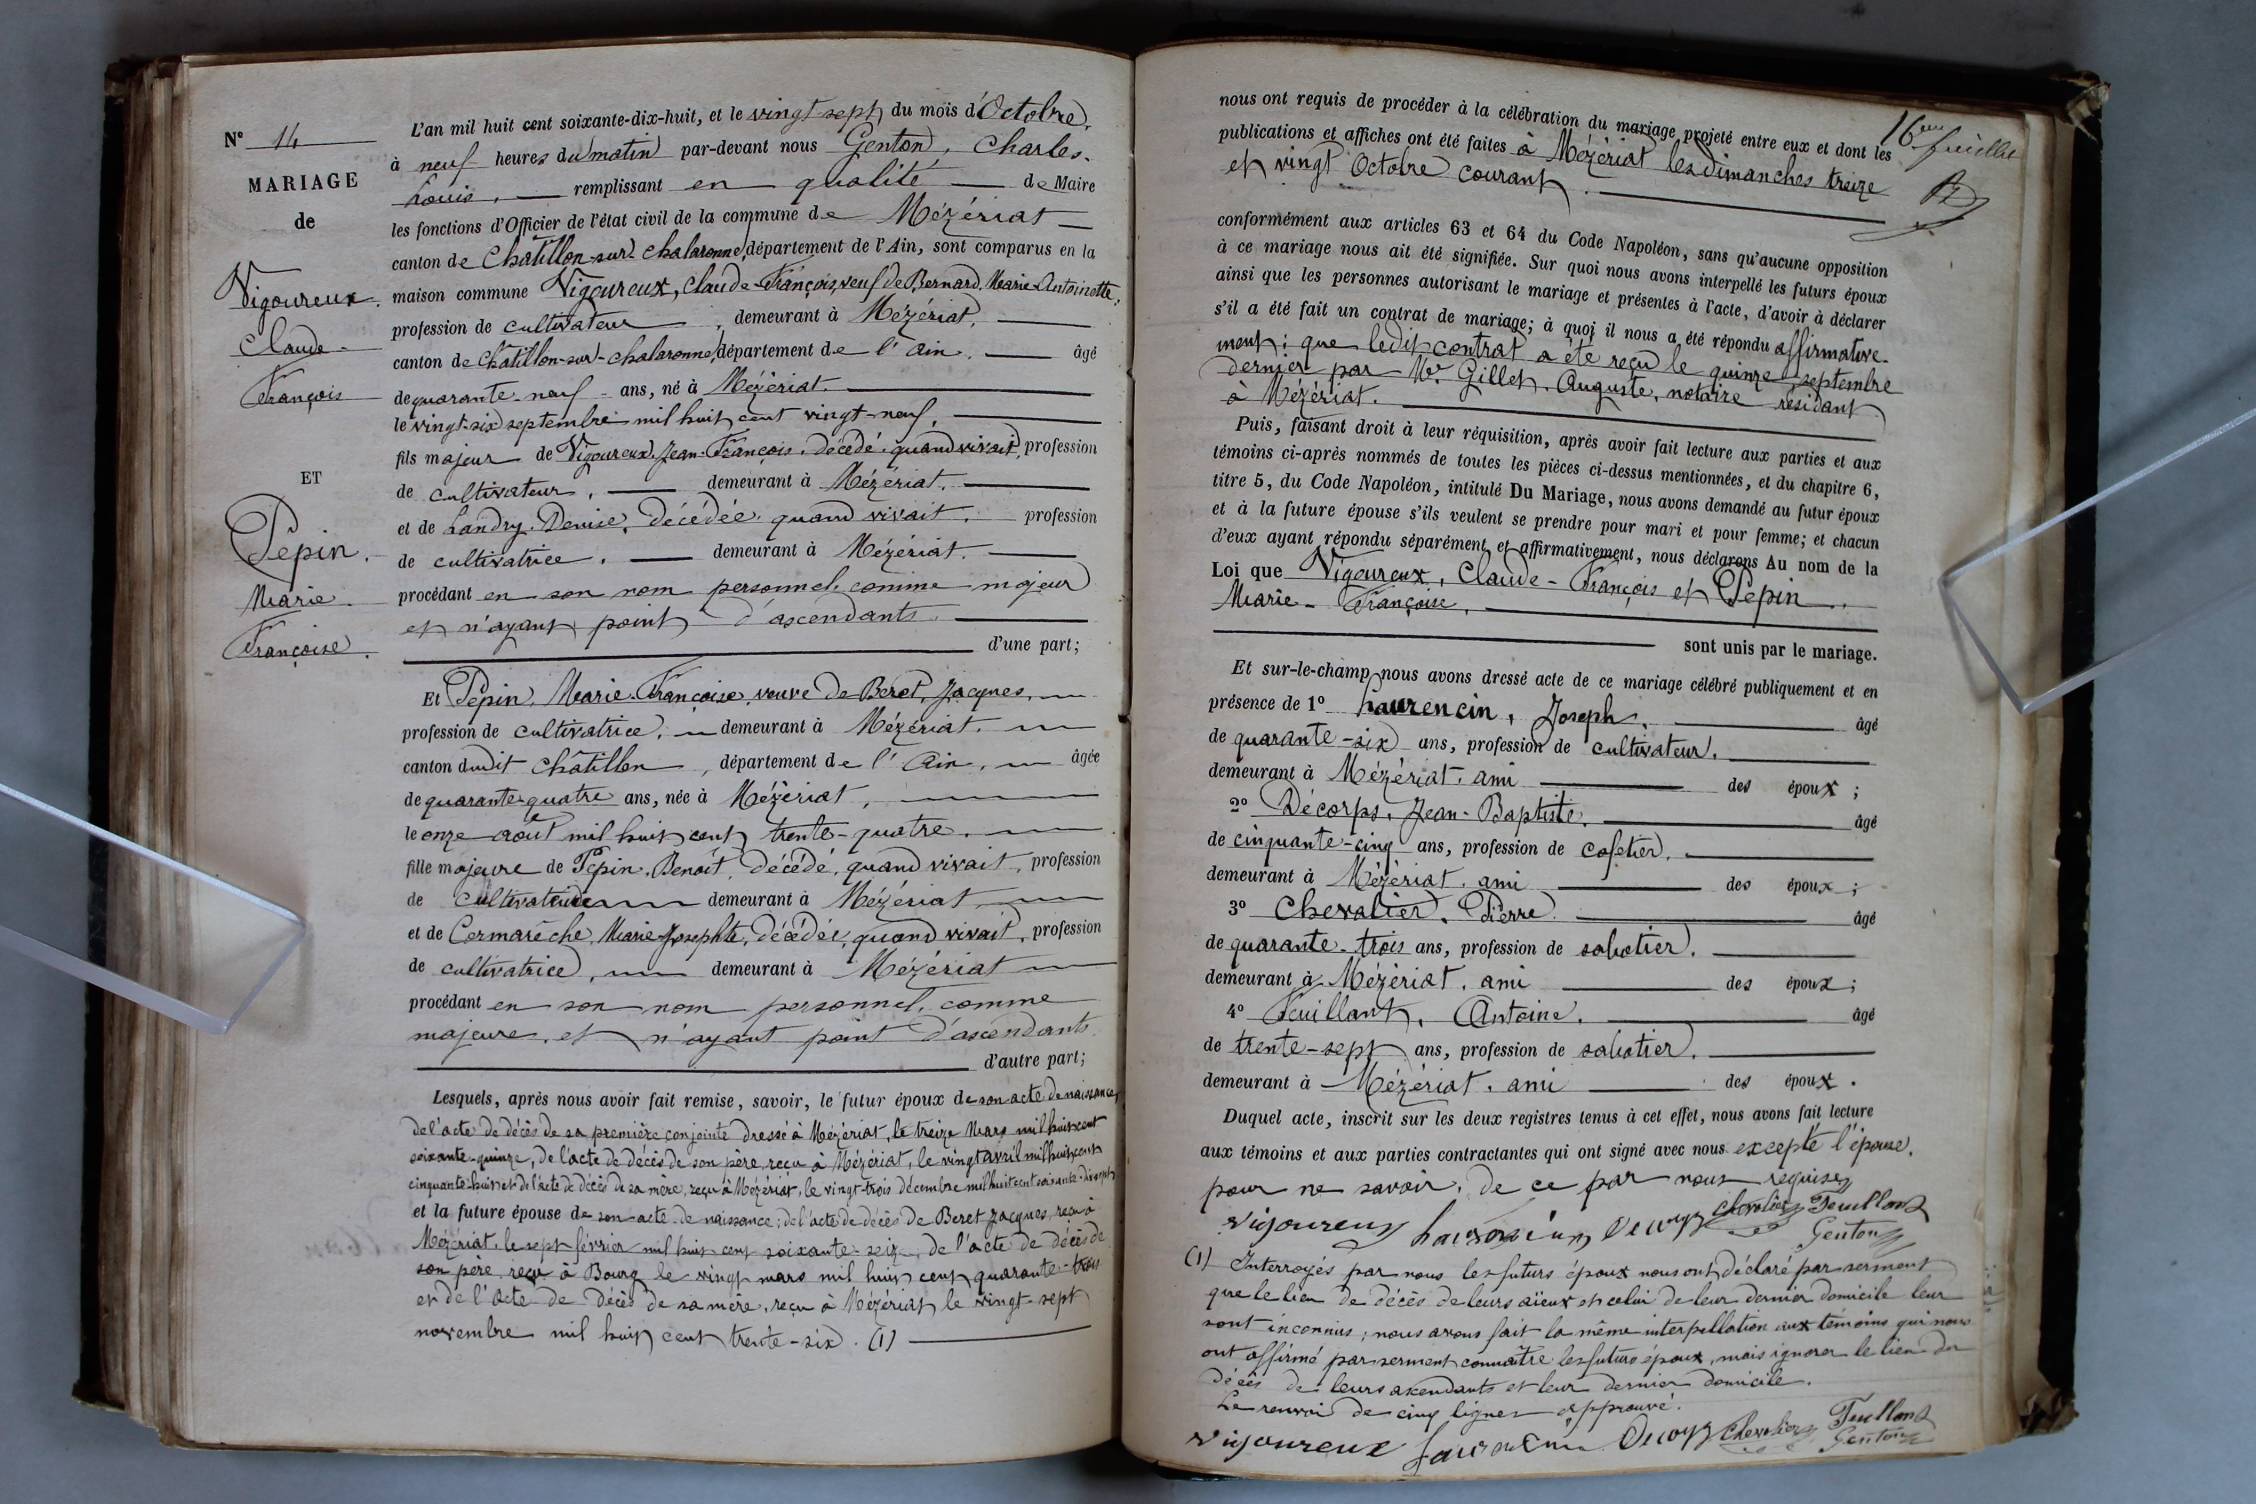 N° 14
MARIAGE
de
Vigoureux
Claude
François
ET
Pépin
Marie
Françoise
L'an mil huit cent soixante-dix-huit, et le vingt sept du mois d'Octobre,
à neuf heures du matin par-devant nous Genton, Charles
Louis, remplissant en qualité de Maire
les fonctions d'Officier de l'état civil de la commune de Mézériat
canton de Châtillon-sur-Chalaronne, département de l'Ain, sont comparus en la
maison commune Vigoureux, Claude-François, veuf de Bernard, Marie Antoinette,
profession de cultivateur, demeurant à Mézériat,
canton de Châtillon-sur-Chalaronne, département de l'Ain, âgé
de quarante-neuf ans, né à Mézériat
le vingt-six septembre mil huit cent vingt-neuf,
fils majeur de Vigoureux, Jean-François, décédé, quand vivait, profession
de cultivateur, demeurant à Mézériat,
et de Landry, Denise, décédée, quand vivait, profession
de cultivatrice, demeurant à Mézériat,
procédant en son nom personnel, comme majeur
et n'ayant point d'ascendants
d'une part;
Et Pépin, Marie-Françoise, veuve de Beret, Jacques,
profession de cultivatrice, demeurant à Mézériat,
canton dudit Châtillon, département de l'Ain, âgée
de quarante-quatre ans, née à Mézériat,
le onze août mil huit cent trente-quatre,
fille majeure de Pépin, Benoît, décédé, quand vivait, profession
de cultivateur demeurant à Mézériat,
et de Cormarèche, Marie-Josephte, décédée, quand vivait, profession
de cultivatrice, demeurant à Mézériat
procédant en son nom personnel, comme
majeure, et n'ayant point d'ascendants
d'autre part;
Lesquels, après nous avoir fait remise, savoir, le futur époux de son acte de naissance,
de l'acte de décès de sa première conjointe dressé à Mézériat, le treize Mars mil huit cent
soixante-quinze, de l'acte de décès de son père, reçu à Mézériat, le vingt avril mil huit cent
cinquante-huit et de l'acte de décès de sa mère, reçu à Mézériat, le vingt-trois décembre mil huit cent soixante-dix-sept
et la future épouse de son acte de naissance; de l'acte de décès de Beret Jacques, reçu à
Mézériat, le sept février mil huit cent soixante-seize, de l'acte de décès de
son père, reçu à Bourg le vingt mars mil huit cent quarante-trois
et de l'acte de décès de sa mère, reçu à Mézériat le vingt-sept
novembre mil huit cent trente-six. (1)
16me feuillet
nous ont requis de procéder à la célébration du mariage projeté entre eux et dont les
publications et affiches ont été faites à Mézériat les dimanches treize
et vingt Octobre courant.
conformément aux articles 63 et 64 du Code Napoléon, sans qu'aucune opposition
à ce mariage nous ait été signifiée. Sur quoi nous avons interpellé les futurs époux
ainsi que les personnes autorisant le mariage et présentes à l'acte, d'avoir à déclarer
s'il a été fait un contrat de mariage; à quoi il nous a été répondu affirmative-
ment; que ledit contrat a été reçu le quinze septembre
dernier par Me Gillet, Auguste, notaire résidant
à Mézériat.
Puis, faisant droit à leur réquisition, après avoir fait lecture aux parties et aux
témoins ci-après nommés de toutes les pièces ci-dessus mentionnées, et du chapitre 6,
titre 5, du Code Napoléon, intitulé Du Mariage, nous avons demandé au futur époux
et à la future épouse s'ils veulent se prendre pour mari et pour femme; et chacun
d'eux ayant répondu séparément et affirmativement, nous déclarons Au nom de la
Loi que Vigoureux, Claude-François et Pépin
Marie-Françoise,
sont unis par le mariage.
Et sur-le-champ nous avons dressé acte de ce mariage célébré publiquement et en
présence de 1° Laurencin, Joseph, âgé
de quarante-six ans, profession de cultivateur,
demeurant à Mézériat, ami des époux;
2° Décorps, Jean-Baptiste, âgé
de cinquante-cinq ans, profession de cafetier,
demeurant à Mézériat, ami des époux;
3° Chevalier, Pierre âgé
de quarante-trois ans, profession de sabotier,
demeurant à Mézériat, ami des époux;
4° Feuillant, Antoine, âgé
de trente-sept ans, profession de sabotier,
demeurant à Mézériat, ami des époux.
Duquel acte, inscrit sur les deux registres tenus à cet effet, nous avons fait lecture
aux témoins et aux parties contractantes qui ont signé avec nous excepté l'épouse,
pour ne savoir, de ce par nous requise
Vigoureux Laurencin Decorps Chevalier Feuillant
Genton
(1) Interrogés par nous les futurs époux nous ont déclaré par serment
que le lieu de décès de leurs aïeux et celui de leur dernier domicile leur
sont inconnus; nous avons fait la même interpellation aux témoins qui nous
ont affirmé par serment connaître les futurs époux, mais ignorer le lieu du
décès de leurs ascendants et leur dernier domicile.
Le renvoi de cinq lignes approuvé.
Vigoureux Laurencin Decorps Chevalier Feuillant
Genton